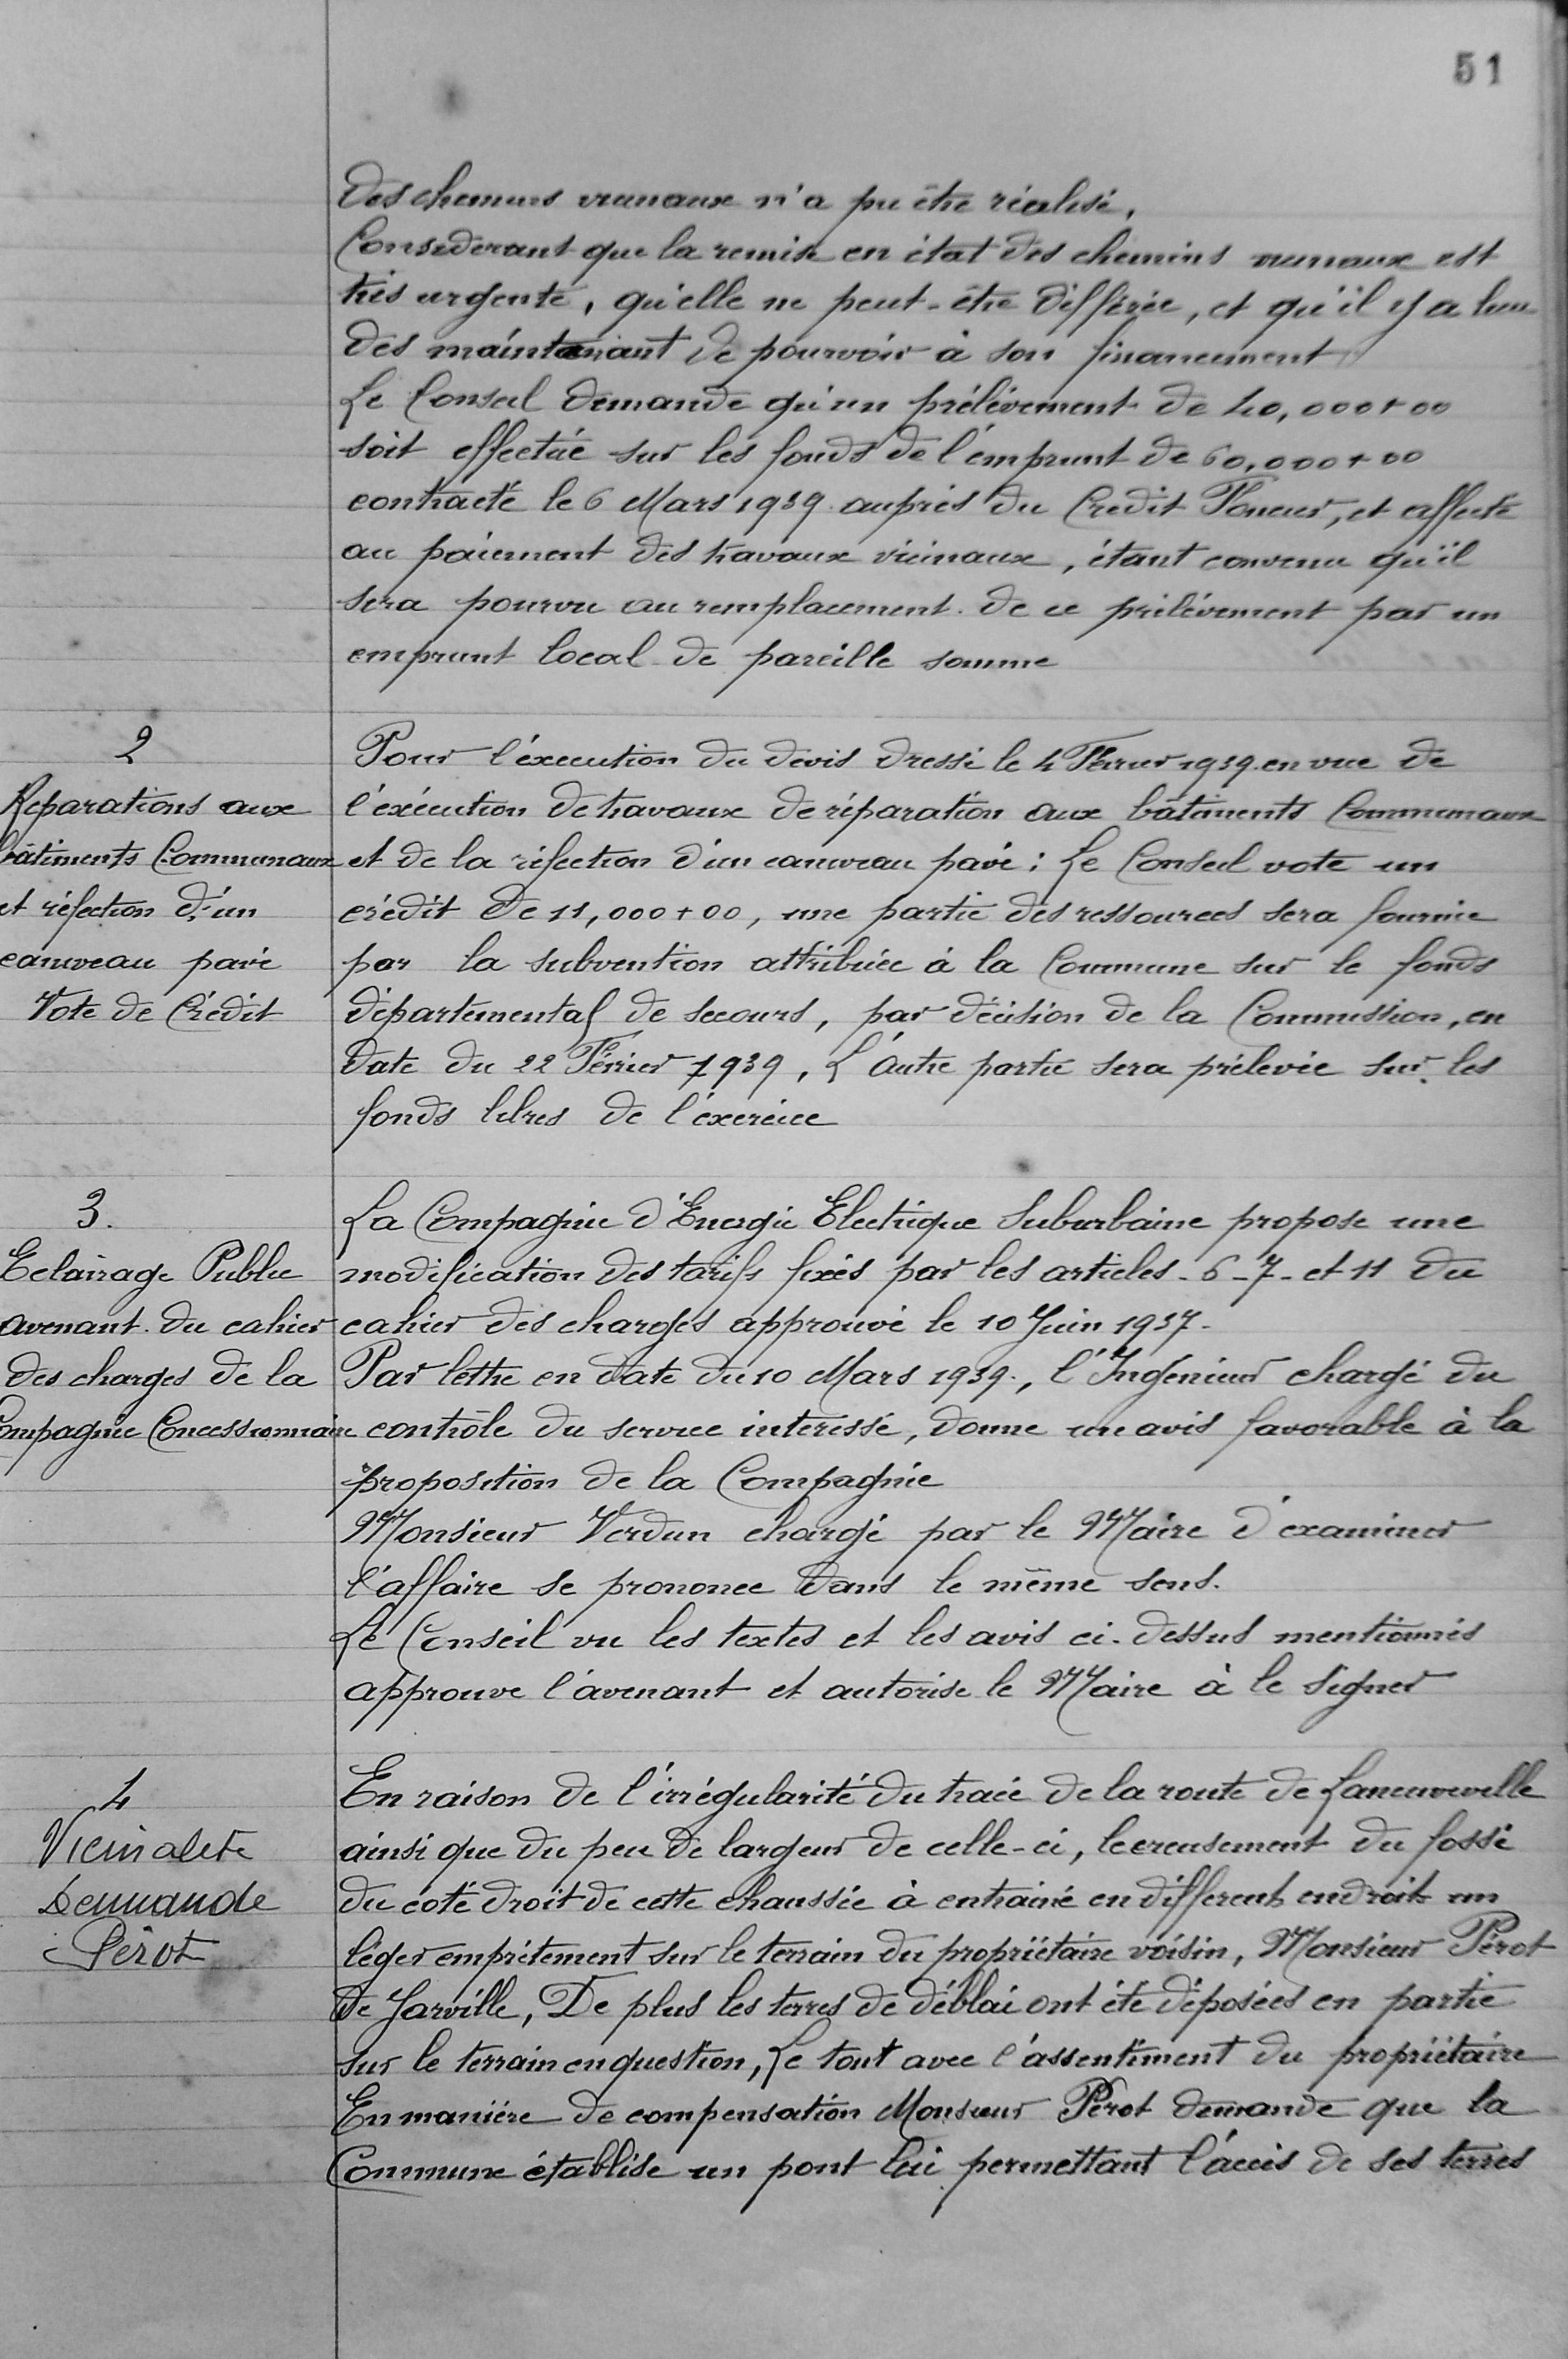 51
des chemins ruraux n'a pu être réalisé,
Considerant que la remise en état des chemins ruraux est
très urgente, qu'elle ne peut-être différée, et qu'il y a lieu
dès maintenant de pourvoir à son financement
Le Conseil demande qu'un prélèvement de 40,000+00
soit effectué sur les fonds de l'emprunt de 60,000+00
contracté le 6 Mars 1939 auprès du Crédit Foncier, et affecté
au paiement des travaux vicinaux, étant convenu qu'il
sera pourvu au remplacement de ce prélèvement par un
emprunt local de pareille somme
2
Reparations aux
bâtiments Communaux
et réfection d'un
caniveau pavé
Vote de Crédit
Pour l'éxecution du dévis dressé le 4 Février 1939 en vue de
l'exécution de travaux de réparation aux bâtiments Communaux
et de la réfection d'un caniveau pavé : Le Conseil vote un
crédit de 11,000+00, une partie des ressources sera fournie
par la subvention attribuée à la Commune sur le fonds
départemental de secours, par décision de la Commission, en
date du 22 Février 1939, L'autre partie sera prélevée sur les
fonds libres de l'exercice
3.
Eclairage Public
avenant du cahier
des charges de la
Compagnie Concessionnaire
La Compagnie d'Energie Electrique Suburbaine propose une
modification des tarifs fixés par les articles - 6 - 7 - et 11 du
cahier des charges approuvé le 10 Juin 1937.
Par lettre en date du 10 Mars 1939., l'Ingénieur chargé du
contrôle du service interessé, donne un avis favorable à la
proposition de la Compagnie
Monsieur Verdun chargé par le Maire d'examiner
l'affaire se prononce dans le même sens.
Le Conseil vu les textes et les avis ci-dessus mentionnés
approuve l'avenant et autorise le Maire à le signer
4
Vicinalité
Demande
Pérot
En raison de l'irrégularité du tracé de la route de Laneuveville
ainsi que du peu de largeur de celle-ci, le creusement du fossé
du coté droit de cette chaussée à entrainé en différents endroits un
léger emprètement sur le terrain du propriétaire voisin, Monsieur Pérot
de Jarville, De plus les terres de déblai ont été déposées en partie
sur le terrain en question, Le tout avec l'assentiment du propriétaire
En manière de compensation Monsieur Pérot demande que la
Commune établise un pont lui permettant l'accès de ses terres